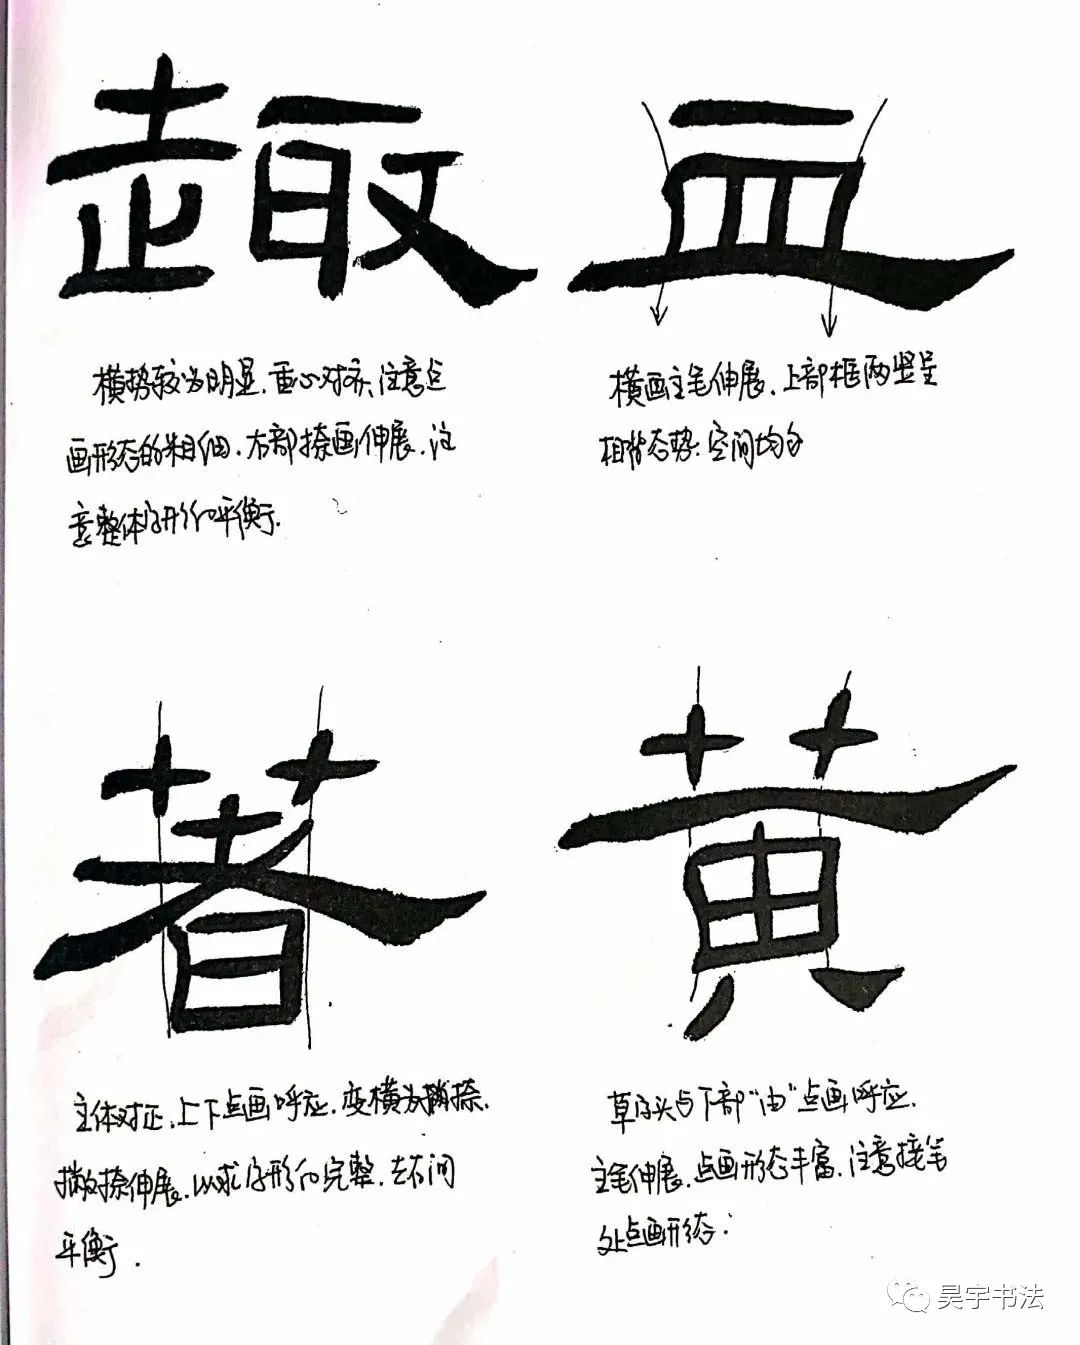 趣
横势较为明显.重心对齐、注意点
画形态的粗细.右部捺画伸展.注
意整体字形的平衡.
血
横画主笔伸展.上部框两竖呈
相背态势:空间均匀
著
主体对正.上下点画呼应.变横为撇捺.
撇捺伸展.以求字形的完整.左右间
平衡.
黄
草字头与下部“由”点画呼应.
主笔伸展.点画形态丰富.注意接笔
处点画形态.
昊宇书法